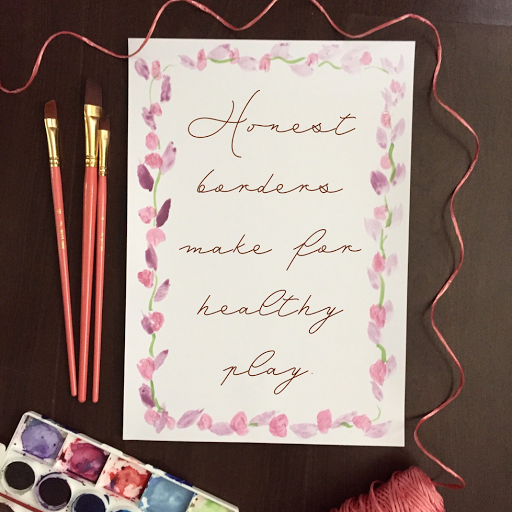 Honest
borders
make for
healthy
play.